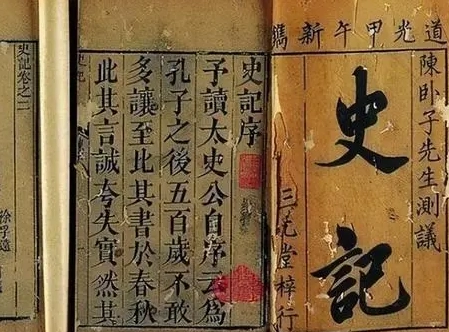 道光甲午新鐫
陳卧子先生測議
史記
三元堂梓行
史記序
予讀太史公自序云為
孔子之後五百歲不敢
多讓至比其書於春秋
此其言誠夸失實然其
史記卷之二
徐孚遠